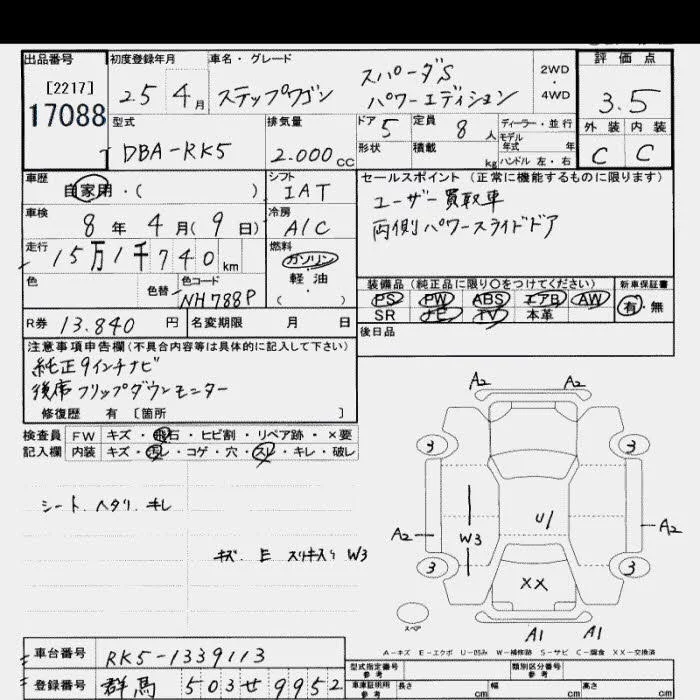 出品番号 初度登録年月 車名・グレード 評価点
[2217]
17088
25 4月 ステップワゴン スパーダS パワーエディション 2WD・4WD
3.5
型式 排気量 ドア 5 定員 8人 ディーラー・並行
モデル年式 年
DBA-RK5 2.000cc 形状 積載 kg ハンドル 左・右
外装 内装
C C
車歴 シフト セールスポイント(正常に機能するものに限ります)
自家用・( ) IAT
ユーザー買取車
車検 冷房
8年 4月(9日) A/C
両側パワースライドドア
走行 燃料
15万1千740km ガソリン・軽油・( )
色 色替 色コード
NH788P
装備品(純正品に限り〇をつけてください) 新車保証書
PS PW ABS エアB AW 有・無
SR ナビ TV 本革
R券 13.840円 名変期限 月 日
後日品
注意事項申告欄(不具合内容等は具体的に記入して下さい)
純正9インチナビ
後席フリップダウンモニター
修復歴 有 〔箇所 〕
検査員 FW キズ・飛石・ヒビ割・リペア跡・×要
記入欄 内装 キズ・汚レ・コゲ・穴・スレ・キレ・破レ
シート.ヘタリ.キレ
キズ.E スリキズ W3
A2 A2
3 3
A2 W3 U1 A2
3 3
XX
スペア
A1 A1
A-キズ E-エクボ U-凹み W-補修跡 S-サビ C-腐食 XX-交換済
車台番号 RK5-1339113
型式指定番号 参考 類別区分番号 参考
登録番号 群馬 503せ9952
車庫証明用 参考 長さ cm 幅 cm 高さ cm